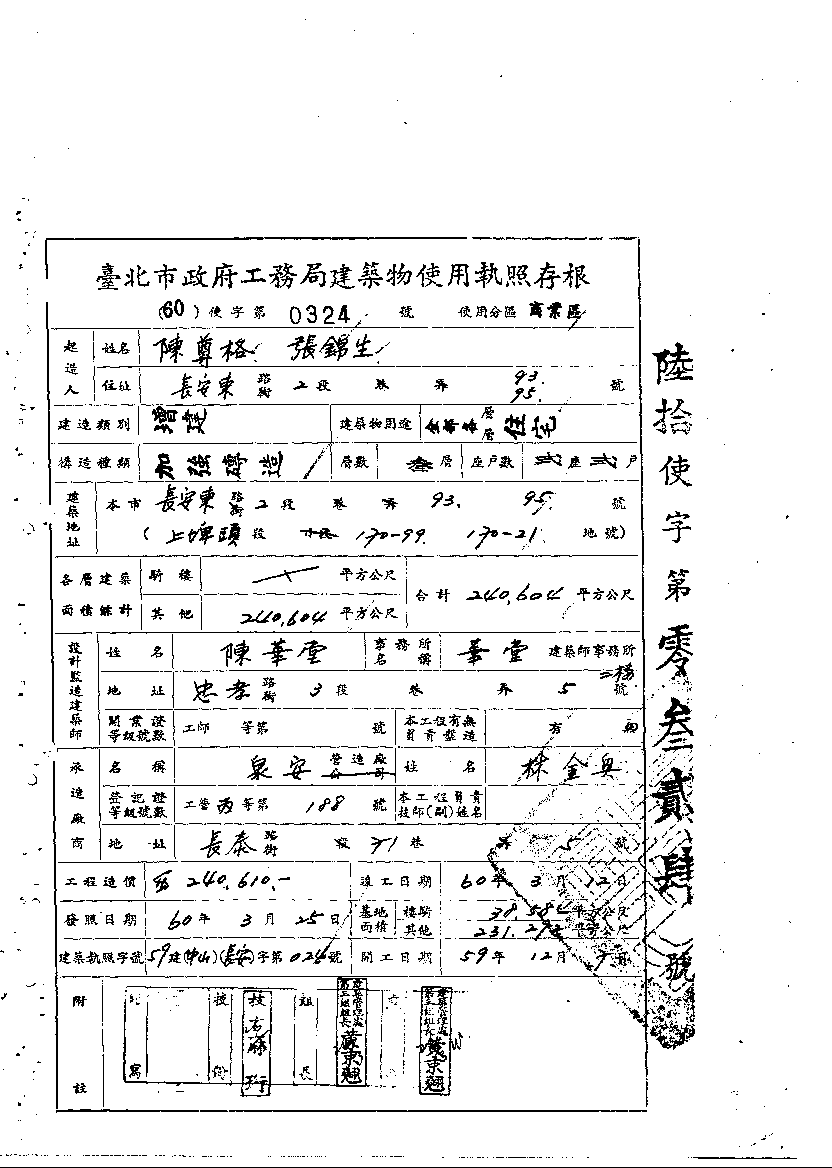 臺北市政府工務局建築物使用執照存根
(60)使字第 0324 號 使用分區 商業區
起造人 姓名 陳尊格 張錦生
住址 長安東 路街 2 段 巷 弄 93. 95. 號
建造類別 增建 建築物用途 全部各層層 住宅
構造種類 加強磚造 層數 叁層 座戶數 弍座弍戶
建築地址 本市 長安東 路街 2 段 巷 弄 93. 95. 號
(上埤頭 段 小段 170-99 170-21 地號)
各層建築面積總計 騎樓 平方公尺 合計 240,604 平方公尺
其他 240,604 平方公尺
設計監造建築師 姓名 陳華堂 事務所名稱 華堂 建築師事務所
地址 忠孝 路街 3 段 巷 弄 5 號 二樓
開業證等級號數 工師 等第 號 本工程有無負責監造 有 無
承造廠商 名稱 泉安 營造廠公司 姓名 林金
登記證等級號數 工營丙等第 188 號 本工程負責技師(副)姓名
地址 長泰 路街 段 71 巷 弄 5 號
工程造價 240,610.- 竣工日期 60年 3月 12日
發照日期 60年 3月 25日 基地面積 騎樓 38.584 平方公尺
其他 231.292 平方公尺
建築執照字號 59建(中山)(長安)字第024號 開工日期 59年 12月 7日
附註
寫 技術 技 組長
建築管理處第三組組長
建築管理處第三組組長
陸拾使字第零叁貳肆號